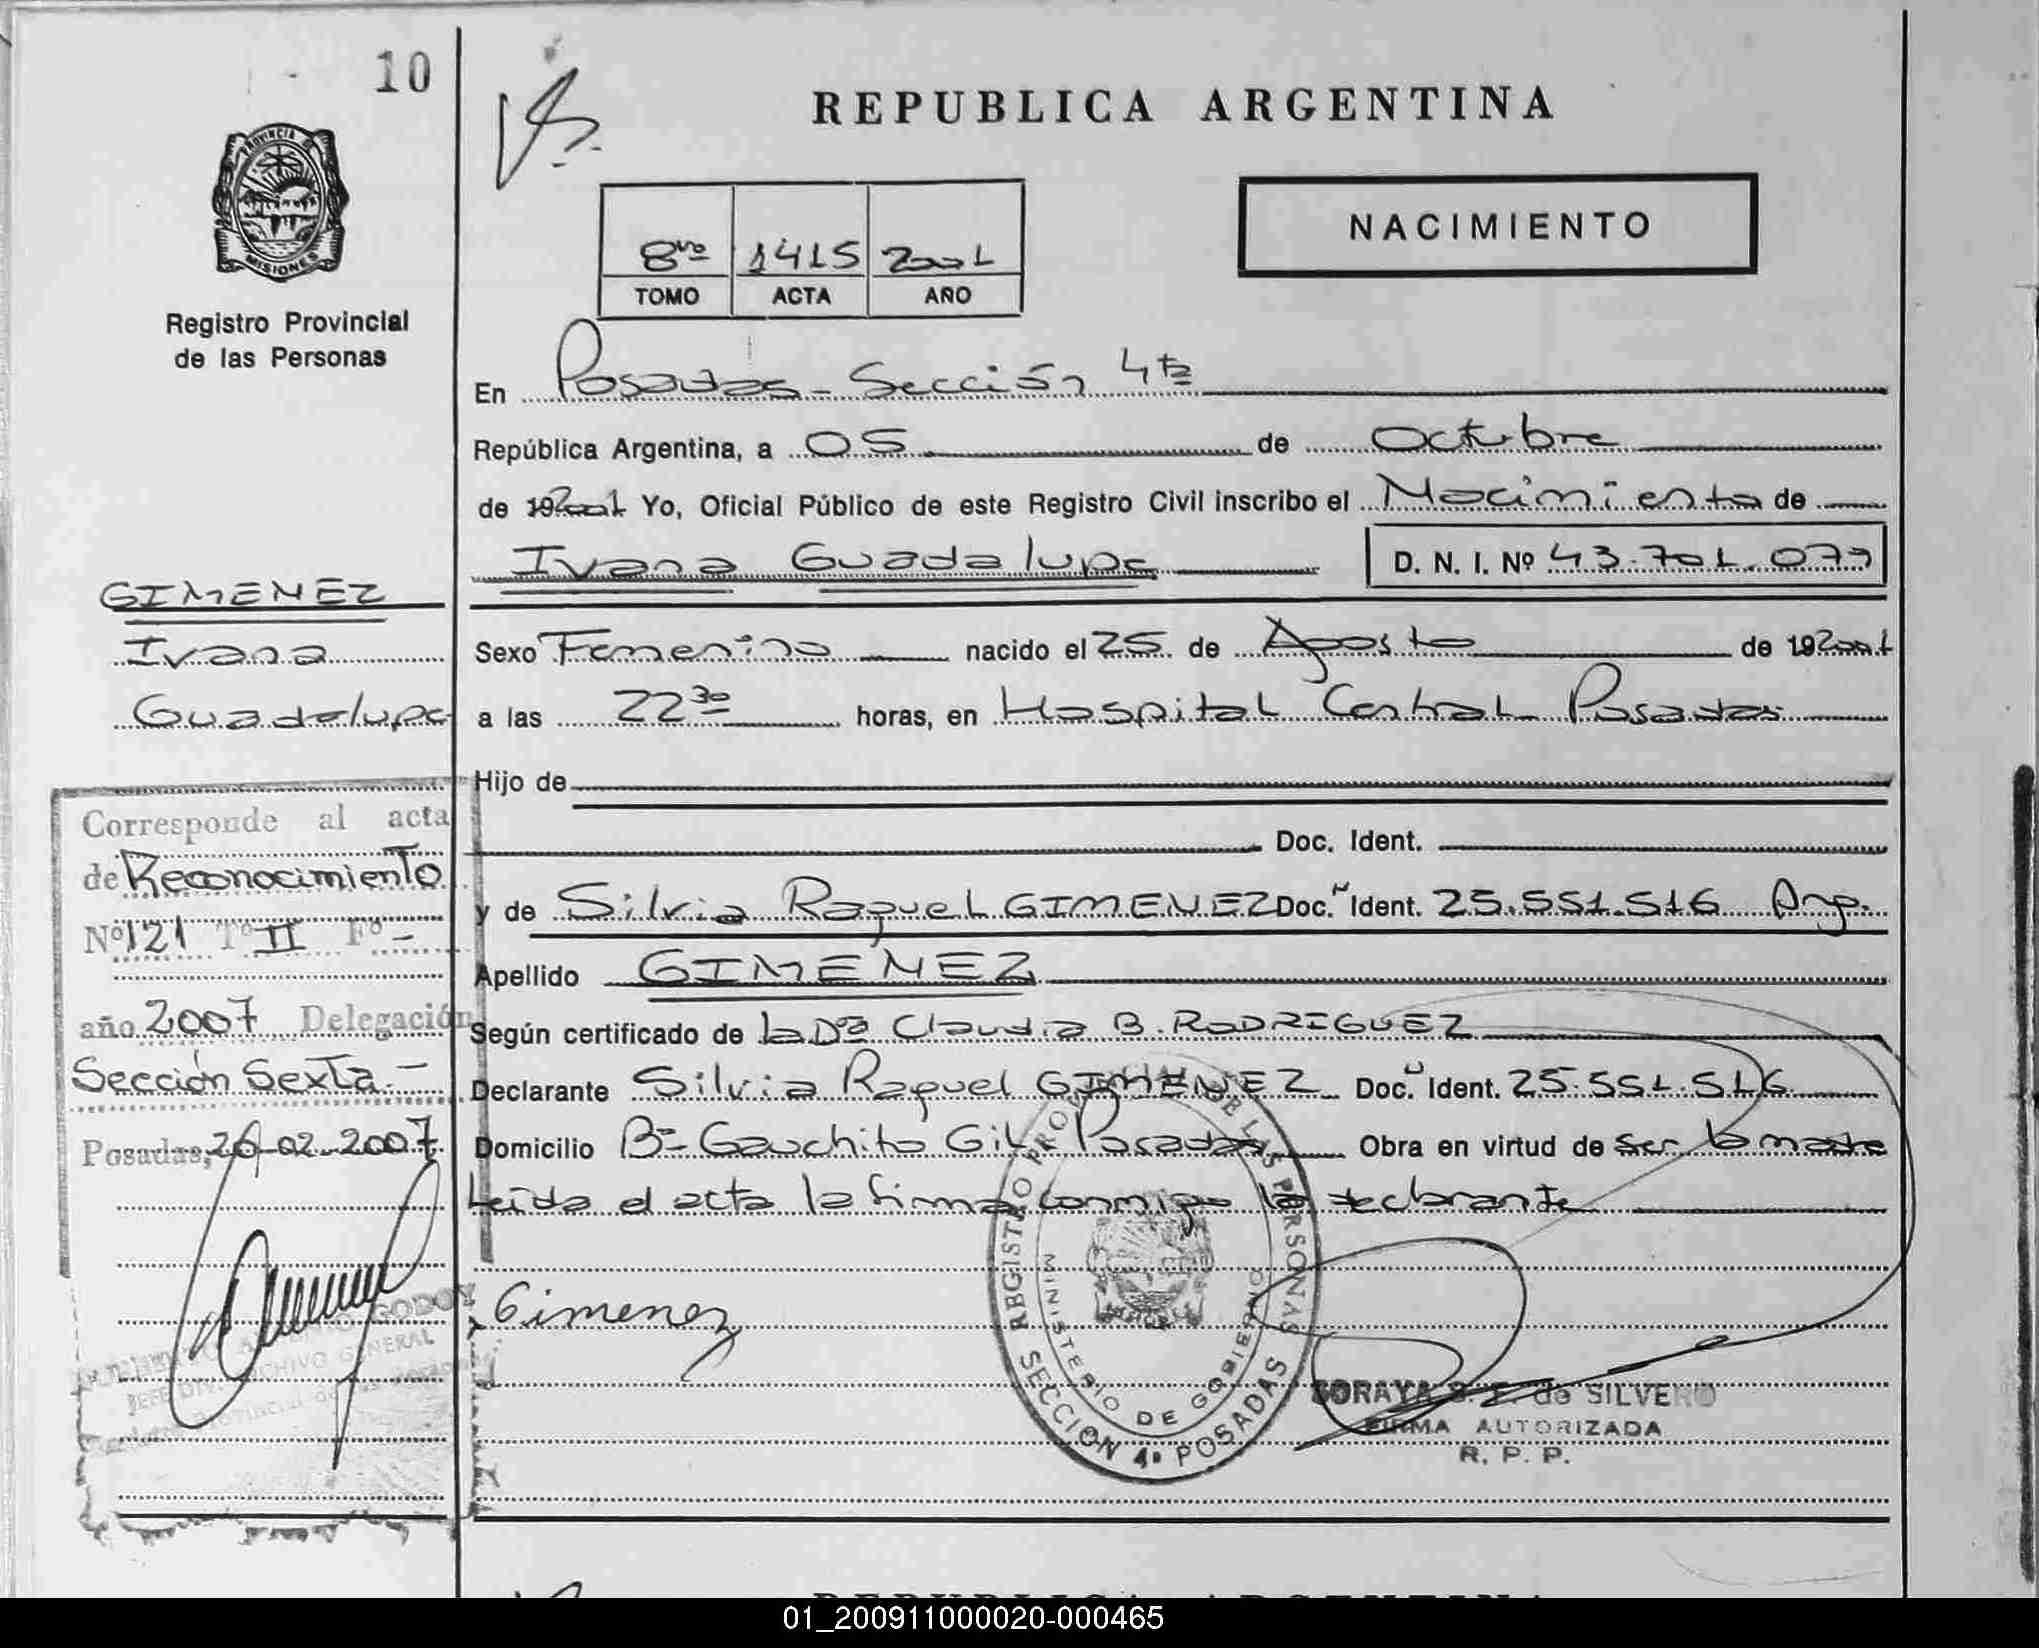 10
REPUBLICA ARGENTINA
PROVINCIA DE
MISIONES
NACIMIENTO
8vo 1415 2001
TOMO ACTA AÑO
Registro Provincial
de las Personas
En Posadas - Sección 4ta
República Argentina, a 05 de Octubre
de 192001 Yo, Oficial Público de este Registro Civil inscribo el Nacimiento de
Ivana Guadalupe D. N. I. Nº 43.701.077
GIMENEZ
Ivana
Guadalupe
Sexo Femenino nacido el 25 de Agosto de 192001
a las 22 30 horas, en Hospital Central Posadas
Hijo de
Doc. Ident.
y de Silvia Raquel GIMENEZ Doc. Ident. 25.551.516 Arg.
Apellido GIMENEZ
Según certificado de la Dra Claudia B. RODRIGUEZ
Declarante Silvia Raquel GIMENEZ Doc. Ident. 25.551.516
Domicilio Bº Gauchito Gil Posadas Obra en virtud de ser la madre
Leida el acta la firma conmigo la declarante
Corresponde al acta
de Reconocimiento
Nº 121 Tº II Fº -
año 2007 Delegación
Sección Sexta.-
Posadas, 26-02-2007
GODOY
JEFE DIV. ARCHIVO GENERAL
Gimenez
REGISTRO PROVINCIAL DE LAS PERSONAS
MINISTERIO DE GOBIERNO
SECCION 4ª POSADAS
SORAYA S. F. de SILVERO
FIRMA AUTORIZADA
R. P. P.
REPUBLICA ARGENTINA
01_200911000020-000465